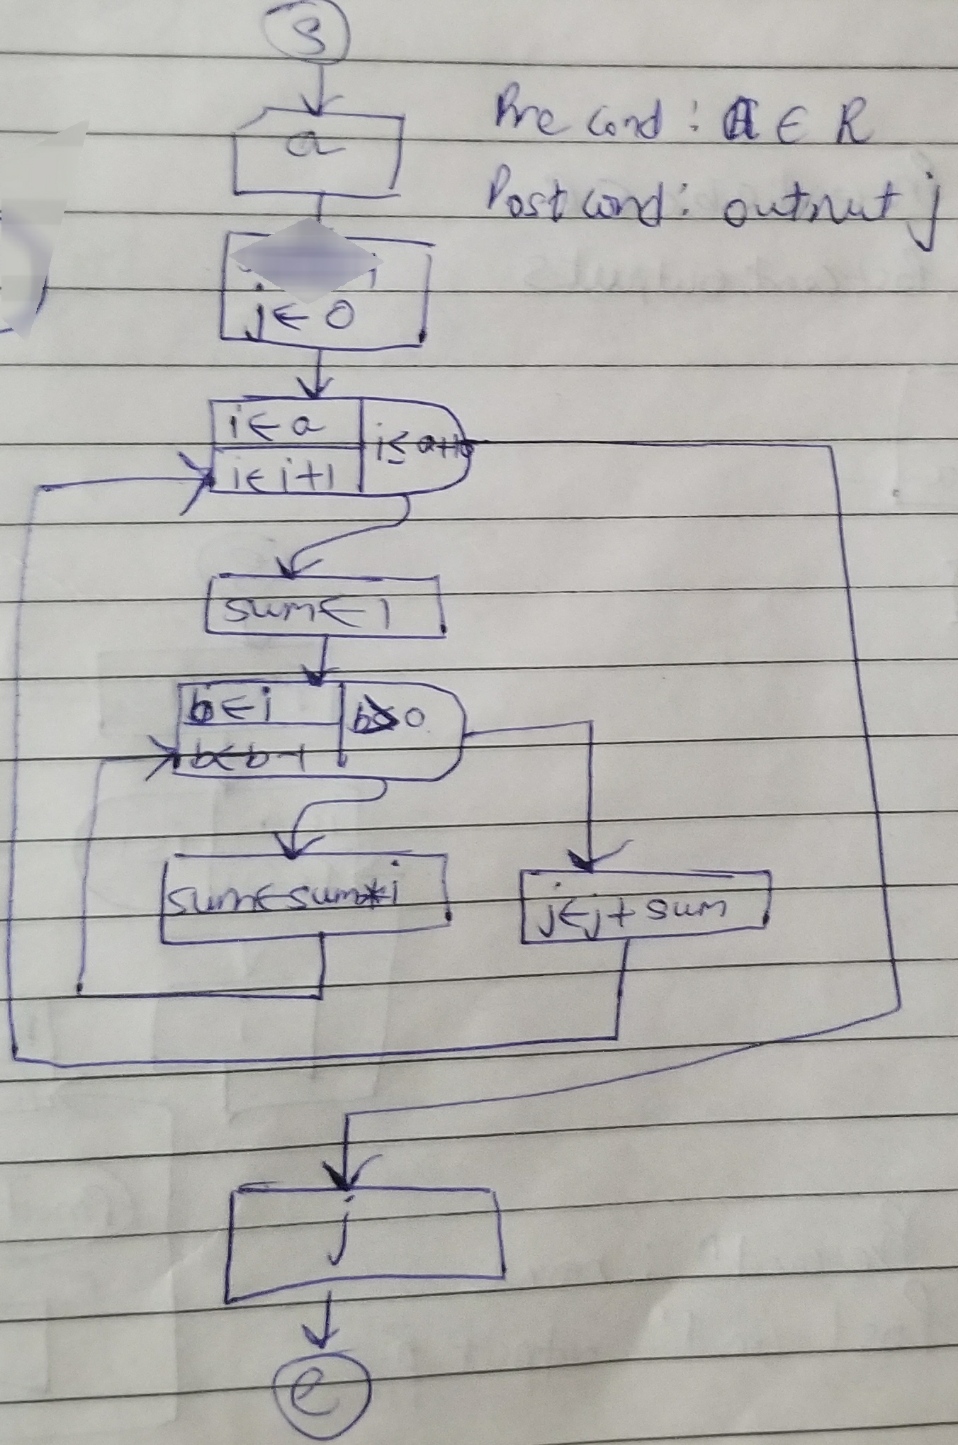 S
a
Pre cond: A ∈ R
Post cond: output j
j ← 0
i ← a
i ≤ a+10
i ← i+1
sum ← 1
b ← i
b > 0
b ← b-1
sum ← sum * i
j ← j + sum
j
e